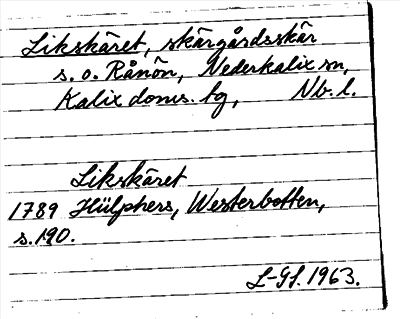 Likskäret, skärgårdsskär
s. o. Rånön, Nederkalix sn,
Kalix doms. tg, Nb. l.
Likskäret
1789 Hülphers, Westerbotten,
s. 190.
L-GL. 1963.